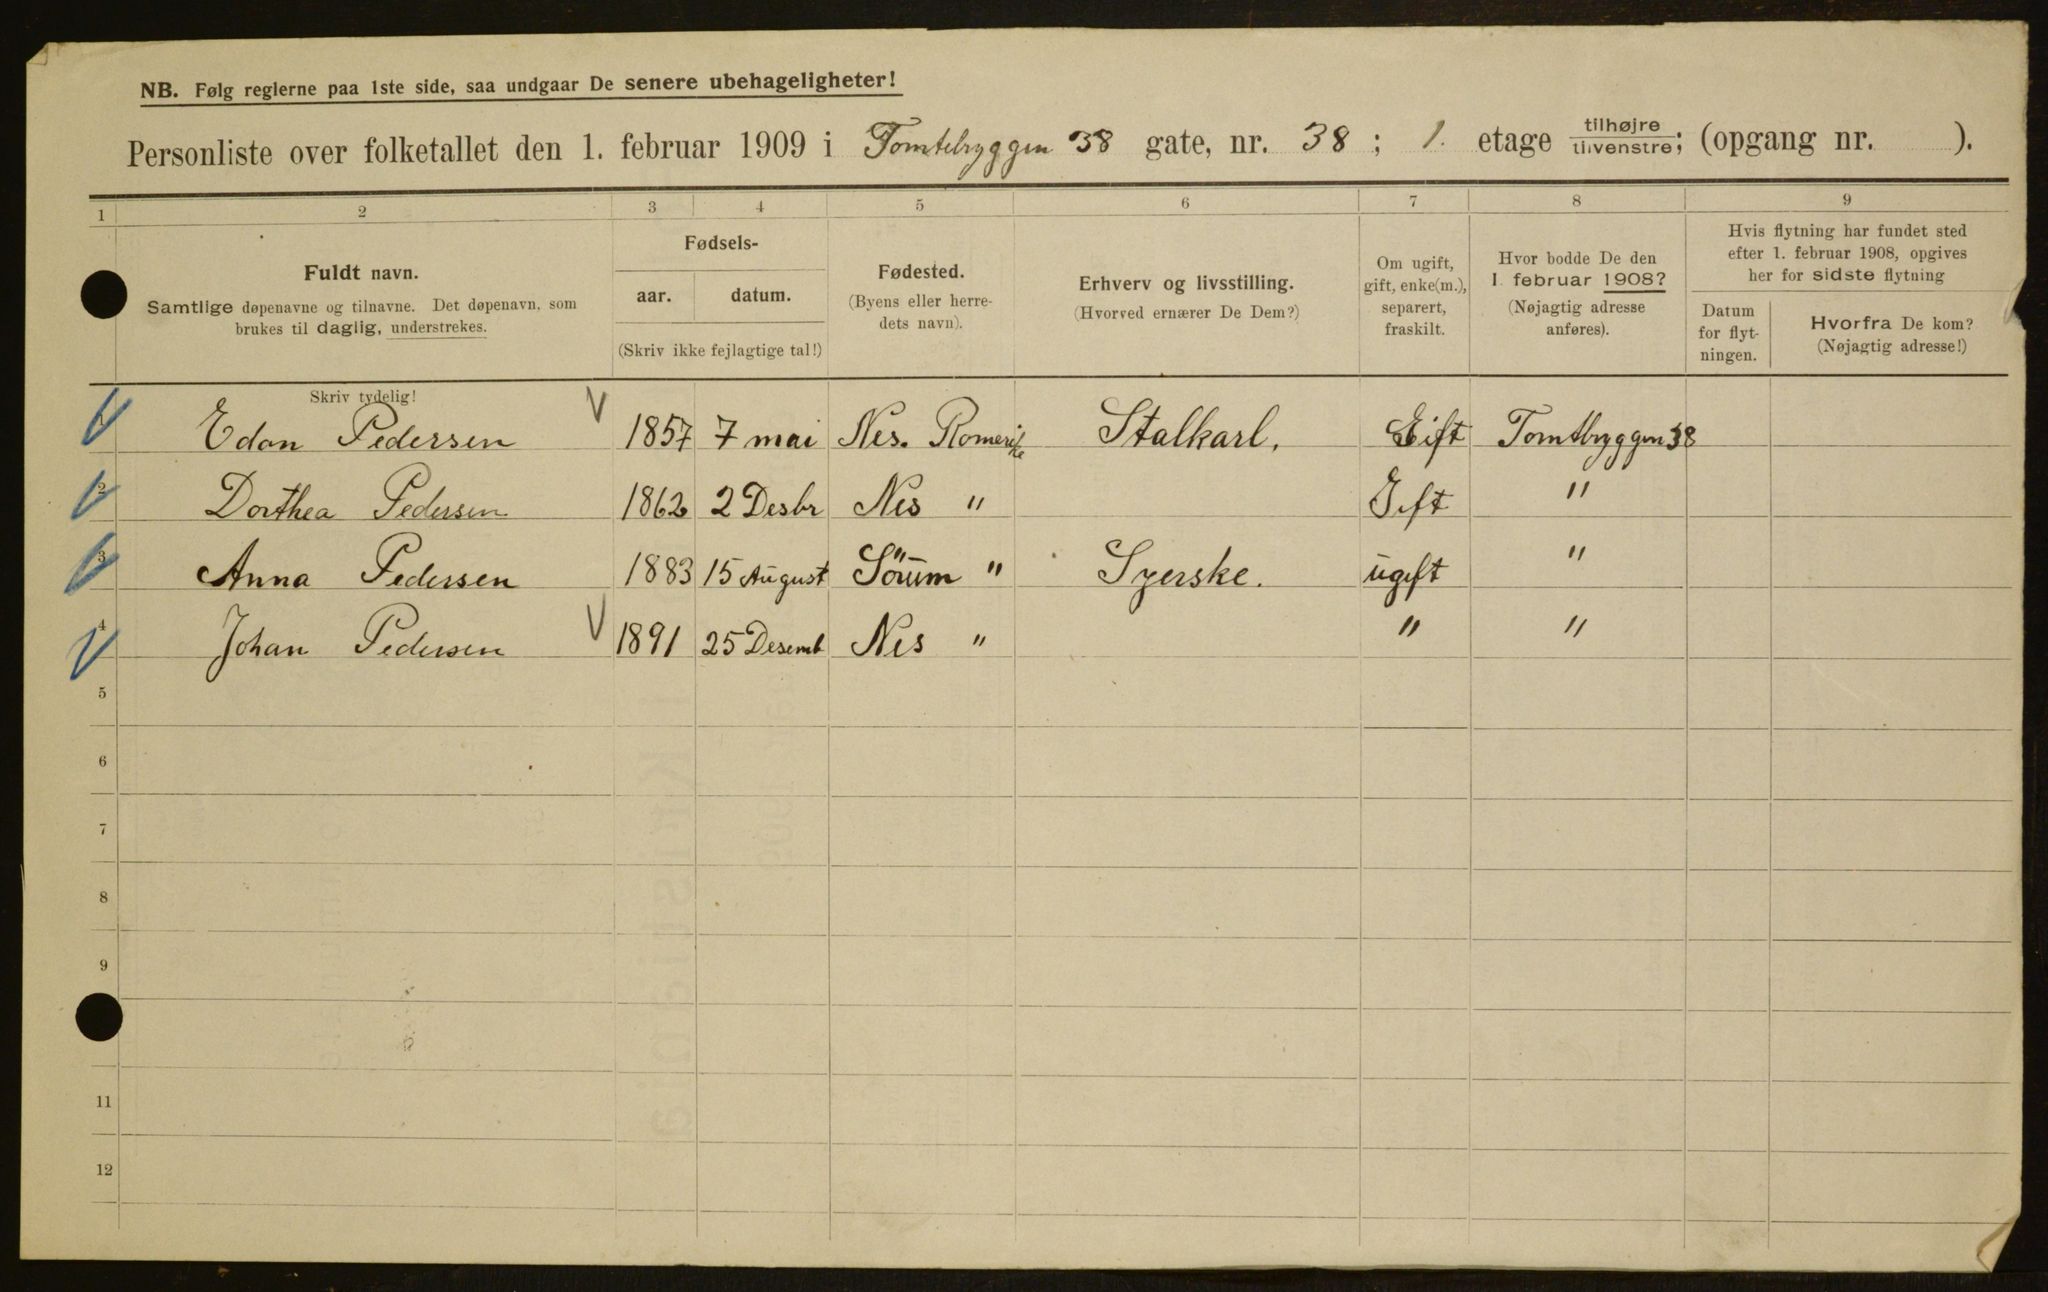 NB. Følg reglerne paa 1ste side, saa undgaar De senere ubehageligheter!
Personliste over folketallet den 1. februar 1909 i Tomtebryggen 38 gate, nr. 38 ; 1. etage tilhøjre tilvenstre; (opgang nr. ).
1 2 3 4 5 6 7 8 9
Fuldt navn.
Samtlige døpenavne og tilnavne. Det døpenavn, som
brukes til daglig, understrekes.
Skriv tydelig!
Fødsels-
aar. datum.
(Skriv ikke fejlagtige tal!)
Fødested.
(Byens eller herre-
dets navn).
Erhverv og livsstilling.
(Hvorved ernærer De Dem?)
Om ugift,
gift, enke(m.),
separert,
fraskilt.
Hvor bodde De den
1. februar 1908?
(Nøjagtig adresse
anføres).
Hvis flytning har fundet sted
efter 1. februar 1908, opgives
her for sidste flytning
Datum
for flyt-
ningen.
Hvorfra De kom?
(Nøjagtig adresse!)
Edon Pedersen 1857 7 mai Nes. Romerike Stalkarl. Gift Tomtbryggen 38
2 Dorthea Pedersen 1862 2 Desbr Nes " Gift "
3 Anna Pedersen 1883 15 August Sörum " Syerske. ugift "
4 Johan Pedersen 1891 25 Desemb Nes " " "
5
6
7
8
9
11
12